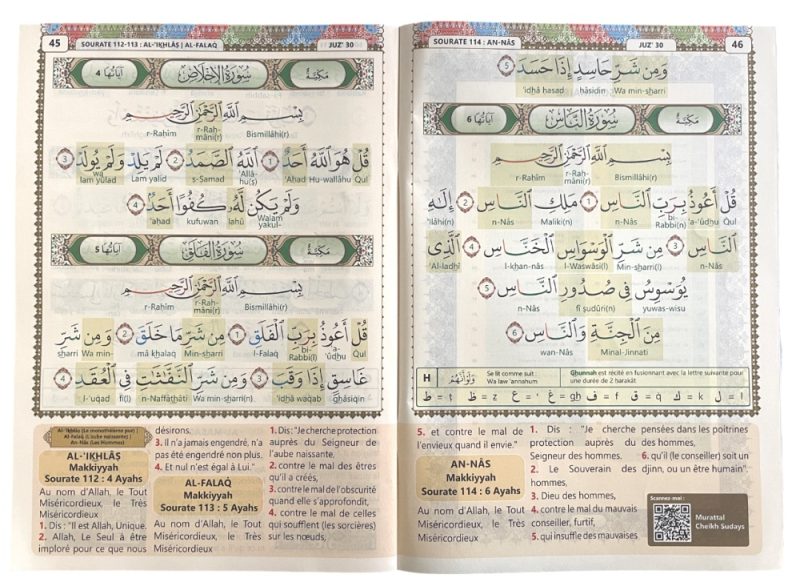 45 SOURATE 112-113 : AL-'IKHLÂṢ | AL-FALAQ JUZ' 30
مَكِيَّة سُورَةُ الإِخْلَاصِ آيَاتُهَا 4
بِسْمِ اللَّهِ الرَّحْمَٰنِ الرَّحِيمِ
Bismillâhi(r) r-Raḥ-mâni(r) r-Raḥîm
قُلْ هُوَ اللَّهُ أَحَدٌ ١ اللَّهُ الصَّمَدُ ٢ لَمْ يَلِدْ وَلَمْ يُولَدْ ٣
Qul Hu-wallâhu 'Aḥad 'Allâ-hu(ṣ) ṣ-Ṣamad Lam yalid wa lam yûlad
وَلَمْ يَكُن لَّهُ كُفُوًا أَحَدٌ ٤
Walam yakul- lahû kufuwan 'aḥad
مَكِيَّة سُورَةُ الفَلَقِ آيَاتُهَا 5
بِسْمِ اللَّهِ الرَّحْمَٰنِ الرَّحِيمِ
Bismillâhi(r) r-Raḥ-mâni(r) r-Raḥîm
قُلْ أَعُوذُ بِرَبِّ الْفَلَقِ ١ مِن شَرِّ مَا خَلَقَ ٢ وَمِن شَرِّ
Qul 'a-'ûdhu bi-Rabbi(l) l-Falaq Min-sharri mâ khalaq Wa min- sharri
غَاسِقٍ إِذَا وَقَبَ ٣ وَمِن شَرِّ النَّفَّٰثَٰتِ فِي الْعُقَدِ ٤
ghâsiqin 'idhâ waqab Wa min-sharri(n) n-Naffâthâti fi(l) l-'uqad
Al-'Ikhlâṣ (Le monothéisme pur) |
Al-Falaq (L'aube naissante) |
An-Nâs (Les Hommes)
AL-'IKHLÂṢ
Makkiyyah
Sourate 112 : 4 Ayahs
Au nom d'Allah, le Tout
Miséricordieux, le Très
Miséricordieux
1. Dis : "Il est Allah, Unique.
2. Allah, Le Seul à être
imploré pour ce que nous
désirons.
3. Il n'a jamais engendré, n'a
pas été engendré non plus.
4. Et nul n'est égal à Lui."
AL-FALAQ
Makkiyyah
Sourate 113 : 5 Ayahs
Au nom d'Allah, le Tout
Miséricordieux, le Très
Miséricordieux
1. Dis : "Je cherche protection
auprès du Seigneur de
l'aube naissante.
2. contre le mal des êtres
qu'il a créés,
3. contre le mal de l'obscurité
quand elle s'approfondit,
4. contre le mal de celles
qui soufflent (les sorcières)
sur les nœuds,
SOURATE 114 : AN-NÂS JUZ' 30 46
وَمِن شَرِّ حَاسِدٍ إِذَا حَسَدَ ٥
Wa min-sharri ḥâsidin 'idhâ ḥasad
مَكِيَّة سُورَةُ النَّاسِ آيَاتُهَا 6
بِسْمِ اللَّهِ الرَّحْمَٰنِ الرَّحِيمِ
Bismillâhi(r) r-Raḥ-mâni(r) r-Raḥîm
قُلْ أَعُوذُ بِرَبِّ النَّاسِ ١ مَلِكِ النَّاسِ ٢ إِلَٰهِ
Qul 'a-'ûdhu bi-Rabbi(n) n-Nâs Maliki(n) n-Nâs 'Ilâhi(n)
النَّاسِ ٣ مِن شَرِّ الْوَسْوَاسِ الْخَنَّاسِ ٤ الَّذِي
n-Nâs Min-sharri(l) l-Waswâsi(l) l-khan-nâs 'Al-ladhî
يُوَسْوِسُ فِي صُدُورِ النَّاسِ ٥
yuwas-wisu fî ṣudûri(n) n-Nâs
مِنَ الْجِنَّةِ وَالنَّاسِ ٦
Minal-Jinnati wan-Nâs
H وَلَوْ أَنَّهُمْ Se lit comme suit : Wa law 'annahum Ghunnah est récité en fusionnant avec la lettre suivante pour une durée de 2 ḥarakât
ط = ṭ ظ = ẓ ع = ' غ = gh ف = f ق = q ك = k ل = l
5. et contre le mal de
l'envieux quand il envie."
AN-NÂS
Makkiyyah
Sourate 114 : 6 Ayahs
Au nom d'Allah, le Tout
Miséricordieux, le Très
Miséricordieux
1. Dis : "Je cherche
protection auprès du
Seigneur des hommes.
2. Le Souverain des
hommes,
3. Dieu des hommes,
4. contre le mal du mauvais
conseiller, furtif,
5. qui insuffle des mauvaises
pensées dans les poitrines
des hommes,
6. qu'il (le conseiller) soit un
djinn, ou un être humain".
Scannez-moi :
Murattal
Cheikh Sudays